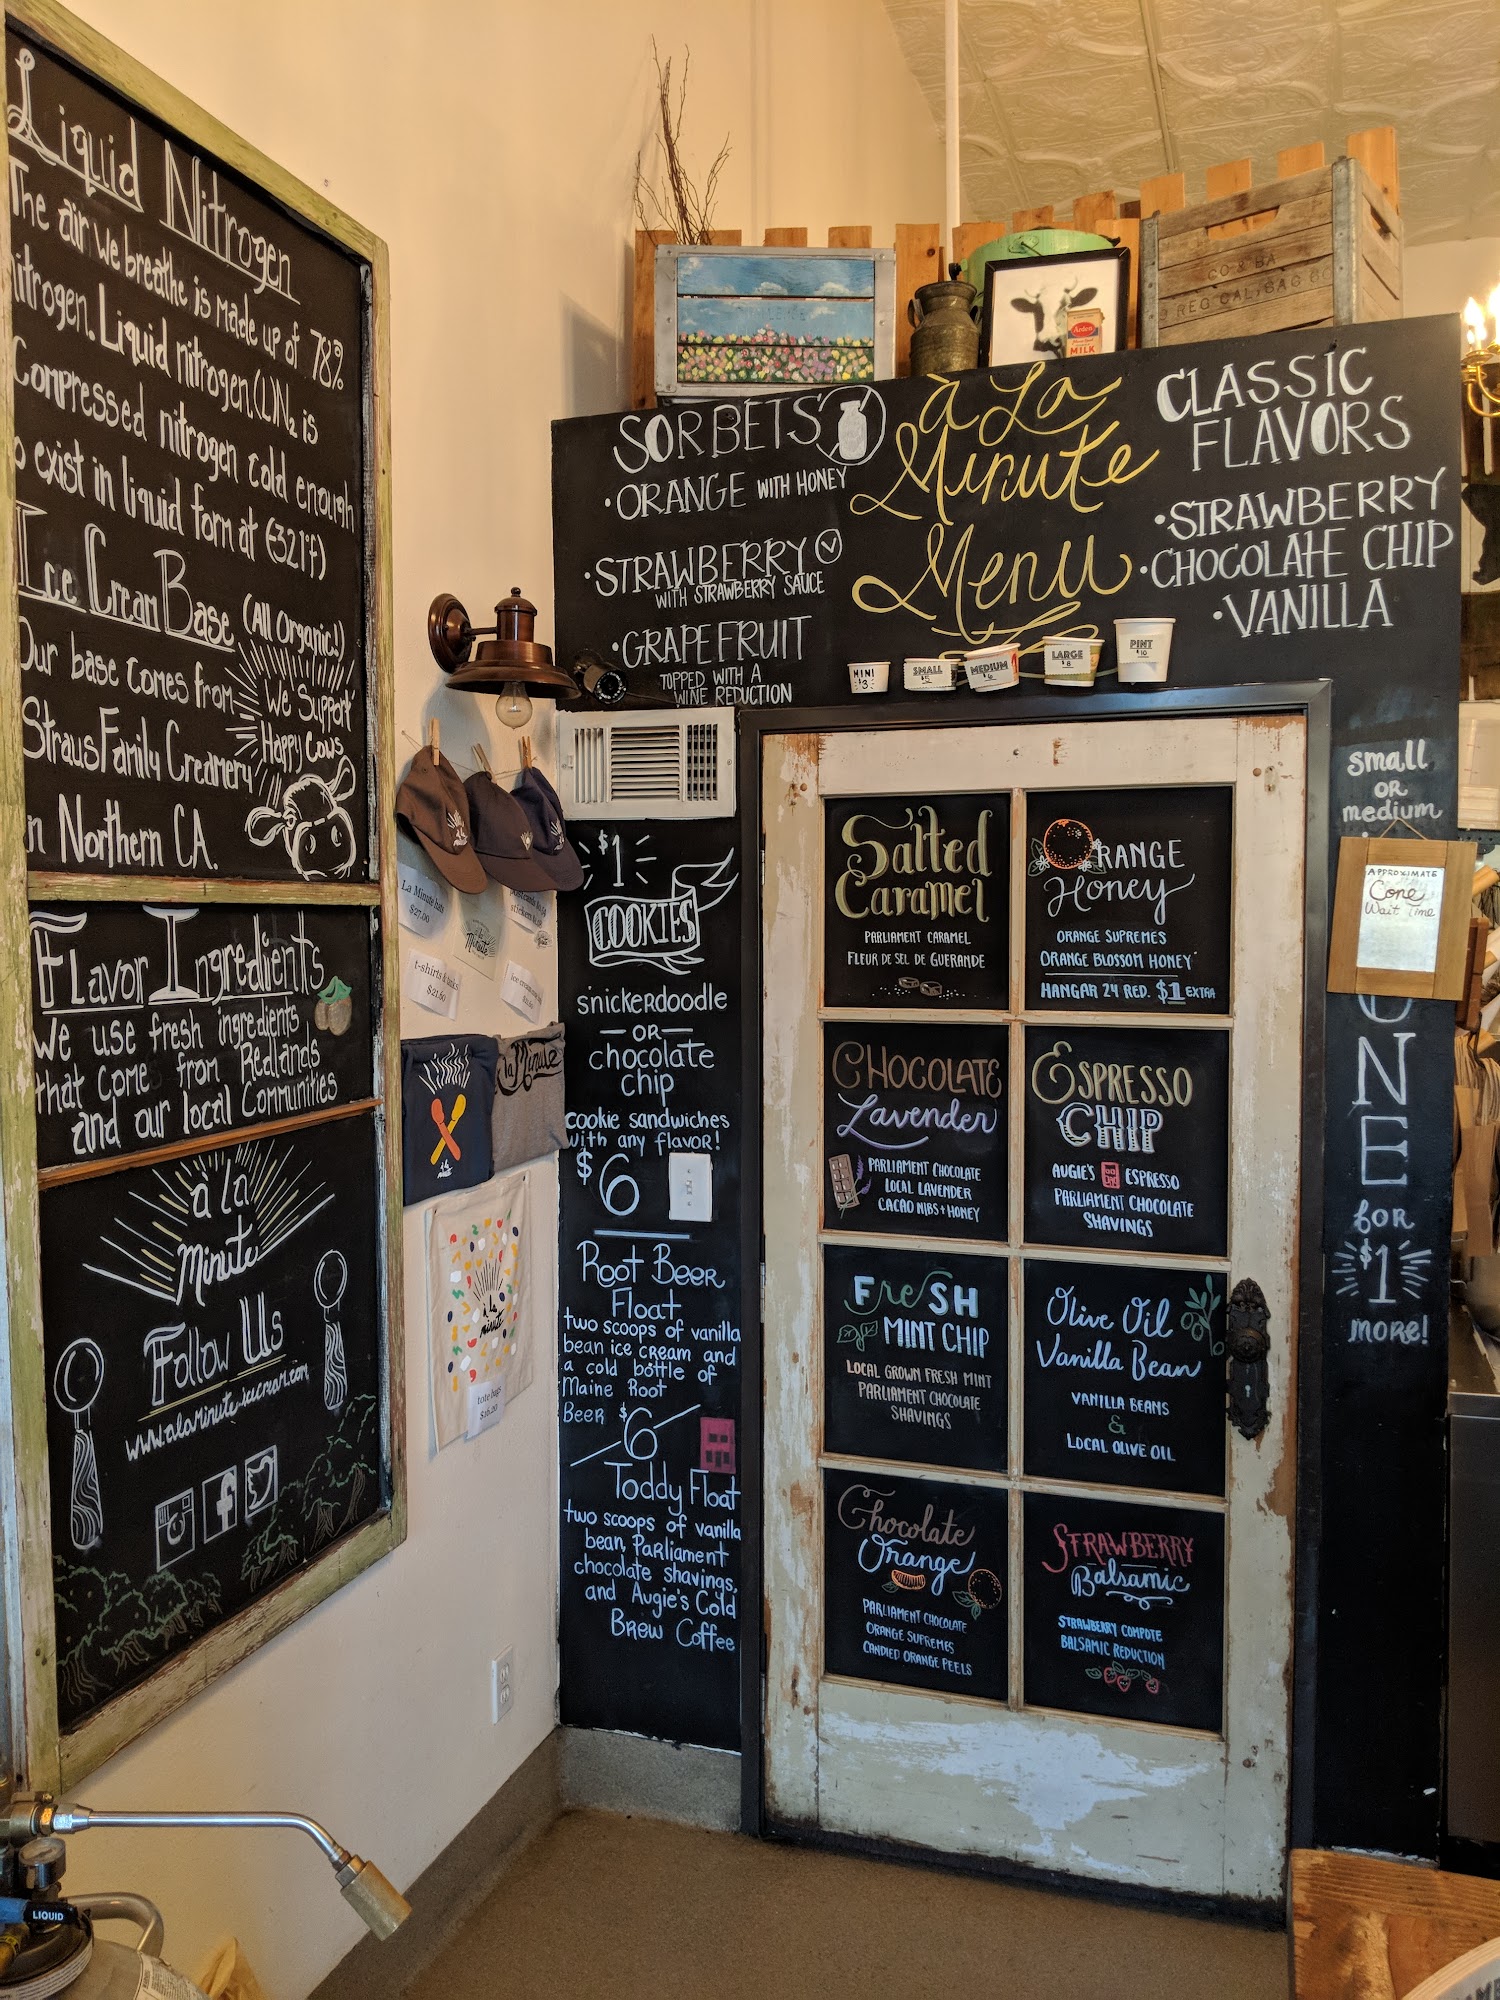 Liquid Nitrogen
The air we breathe is made up of 78%
nitrogen. Liquid nitrogen (L)N₂ is
Compressed nitrogen cold enough
to exist in liquid form at (-321°f)
Ice Cream Base (All Organic!)
Our base comes from
Straus Family Creamery
in Northern CA.
We Support
Happy Cows
Flavor Ingredients
We use fresh ingredients
that come from Redlands
and our local Communities
à la
minute
Follow Us
www.alaminuteicecream.com
La Minute hats
$27.00
t-shirts & tanks
$21.50
à la
Minute
la Minute
à la
minute
tote bags
$16.20
SORBETS
•ORANGE WITH HONEY
•STRAWBERRY V
WITH STRAWBERRY SAUCE
•GRAPEFRUIT
TOPPED WITH A
WINE REDUCTION
à La
Minute
Menu
CLASSIC
FLAVORS
•STRAWBERRY
•CHOCOLATE CHIP
•VANILLA
MINI
$3
SMALL
$5
MEDIUM
$6
LARGE
$8
PINT
$10
Arden
MILK
CO & BA
REG CAL, BAG CO
$1
COOKIES
snickerdoodle
—OR—
chocolate
chip
cookie sandwiches
with any flavor!
$6
Root Beer
Float
two scoops of vanilla
bean ice cream and
a cold bottle of
Maine Root
Beer $6
Toddy Float
two scoops of vanilla
bean, Parliament
chocolate shavings,
and Augie's Cold
Brew Coffee
Salted
Caramel
PARLIAMENT CARAMEL
FLEUR DE SEL DE GUERANDE
ORANGE
Honey
ORANGE SUPREMES
ORANGE BLOSSOM HONEY
HANGAR 24 RED. $1 EXTRA
CHOCOLATE
Lavender
PARLIAMENT CHOCOLATE
LOCAL LAVENDER
CACAO NIBS + HONEY
ESPRESSO
CHIP
AUGIE'S ESPRESSO
PARLIAMENT CHOCOLATE
SHAVINGS
FreSH
MINT CHIP
LOCAL GROWN FRESH MINT
PARLIAMENT CHOCOLATE
SHAVINGS
Olive Oil
Vanilla Bean
VANILLA BEANS
&
LOCAL OLIVE OIL
Chocolate
Orange
PARLIAMENT CHOCOLATE
ORANGE SUPREMES
CANDIED ORANGE PEELS
STRAWBERRY
Balsamic
STRAWBERRY COMPOTE
BALSAMIC REDUCTION
small
OR
medium
APPROXIMATE
Cone
Wait Time
ONE
for
$1
more!
LIQUID